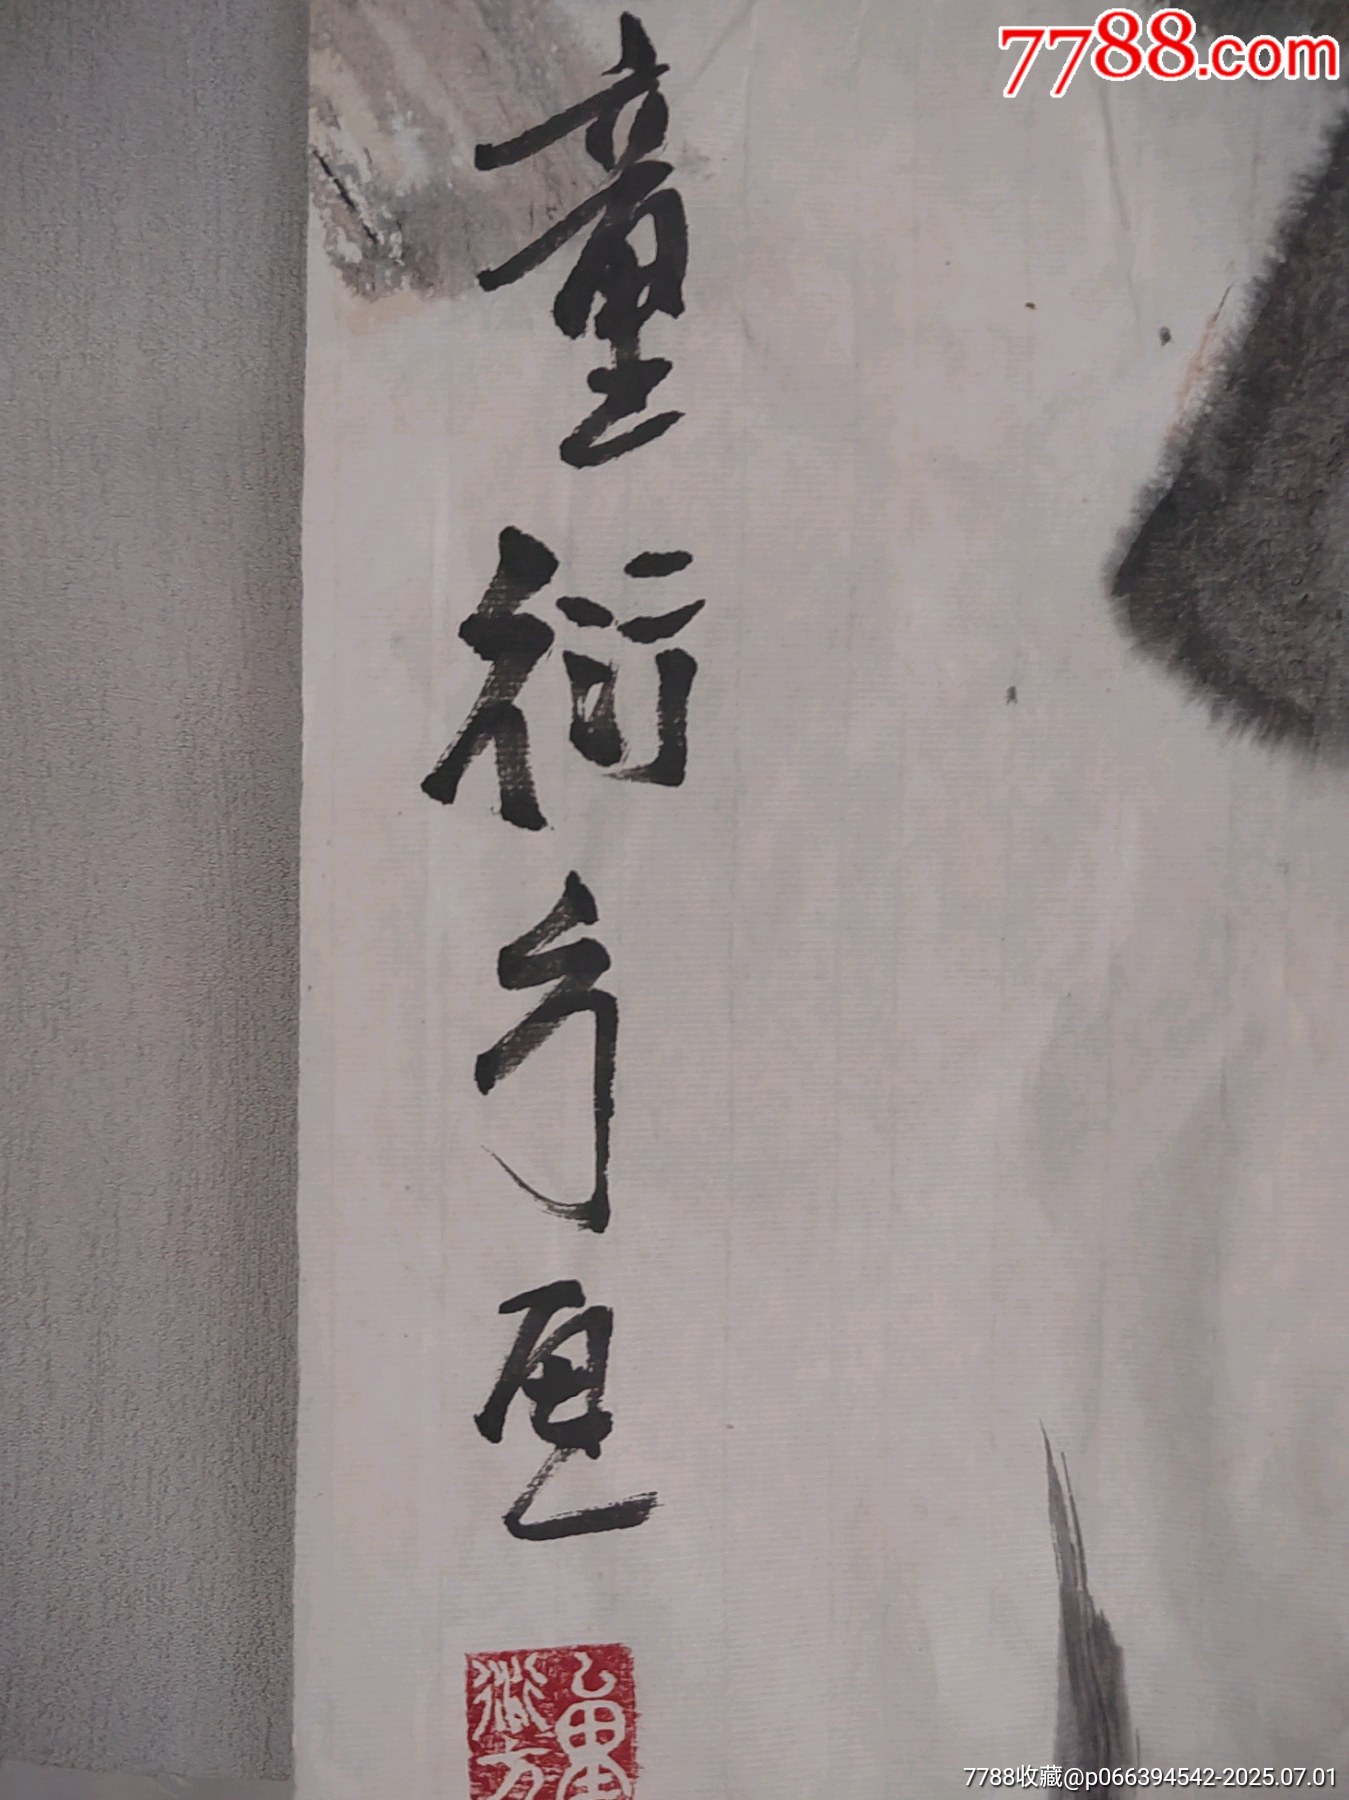 7788.com
童衍方画
童衍方
7788收藏@p066394542-2025.07.01